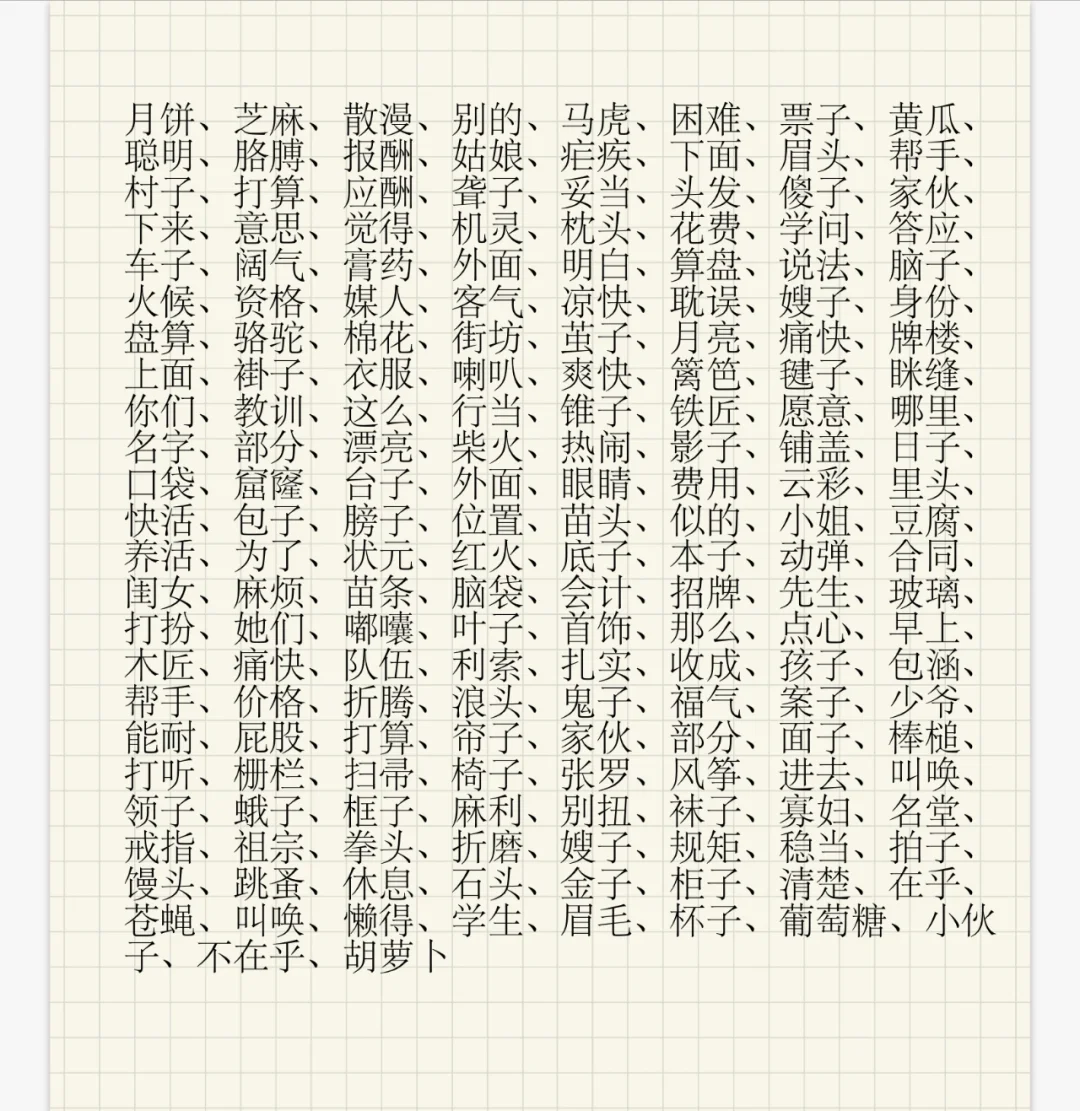 月饼、芝麻、散漫、别的、马虎、困难、票子、黄瓜、
聪明、胳膊、报酬、姑娘、疟疾、下面、眉头、帮手、
村子、打算、应酬、聋子、妥当、头发、傻子、家伙、
下来、意思、觉得、机灵、枕头、花费、学问、答应、
车子、阔气、膏药、外面、明白、算盘、说法、脑子、
火候、资格、媒人、客气、凉快、耽误、嫂子、身份、
盘算、骆驼、棉花、街坊、茧子、月亮、痛快、牌楼、
上面、褂子、衣服、喇叭、爽快、篱笆、毽子、眯缝、
你们、教训、这么、行当、锥子、铁匠、愿意、哪里、
名字、部分、漂亮、柴火、热闹、影子、铺盖、日子、
口袋、窟窿、台子、外面、眼睛、费用、云彩、里头、
快活、包子、膀子、位置、苗头、似的、小姐、豆腐、
养活、为了、状元、红火、底子、本子、动弹、合同、
闺女、麻烦、苗条、脑袋、会计、招牌、先生、玻璃、
打扮、她们、嘟囔、叶子、首饰、那么、点心、早上、
木匠、痛快、队伍、利索、扎实、收成、孩子、包涵、
帮手、价格、折腾、浪头、鬼子、福气、案子、少爷、
能耐、屁股、打算、帘子、家伙、部分、面子、棒槌、
打听、栅栏、扫帚、椅子、张罗、风筝、进去、叫唤、
领子、蛾子、框子、麻利、别扭、袜子、寡妇、名堂、
戒指、祖宗、拳头、折磨、嫂子、规矩、稳当、拍子、
馒头、跳蚤、休息、石头、金子、柜子、清楚、在乎、
苍蝇、叫唤、懒得、学生、眉毛、杯子、葡萄糖、小伙
子、不在乎、胡萝卜